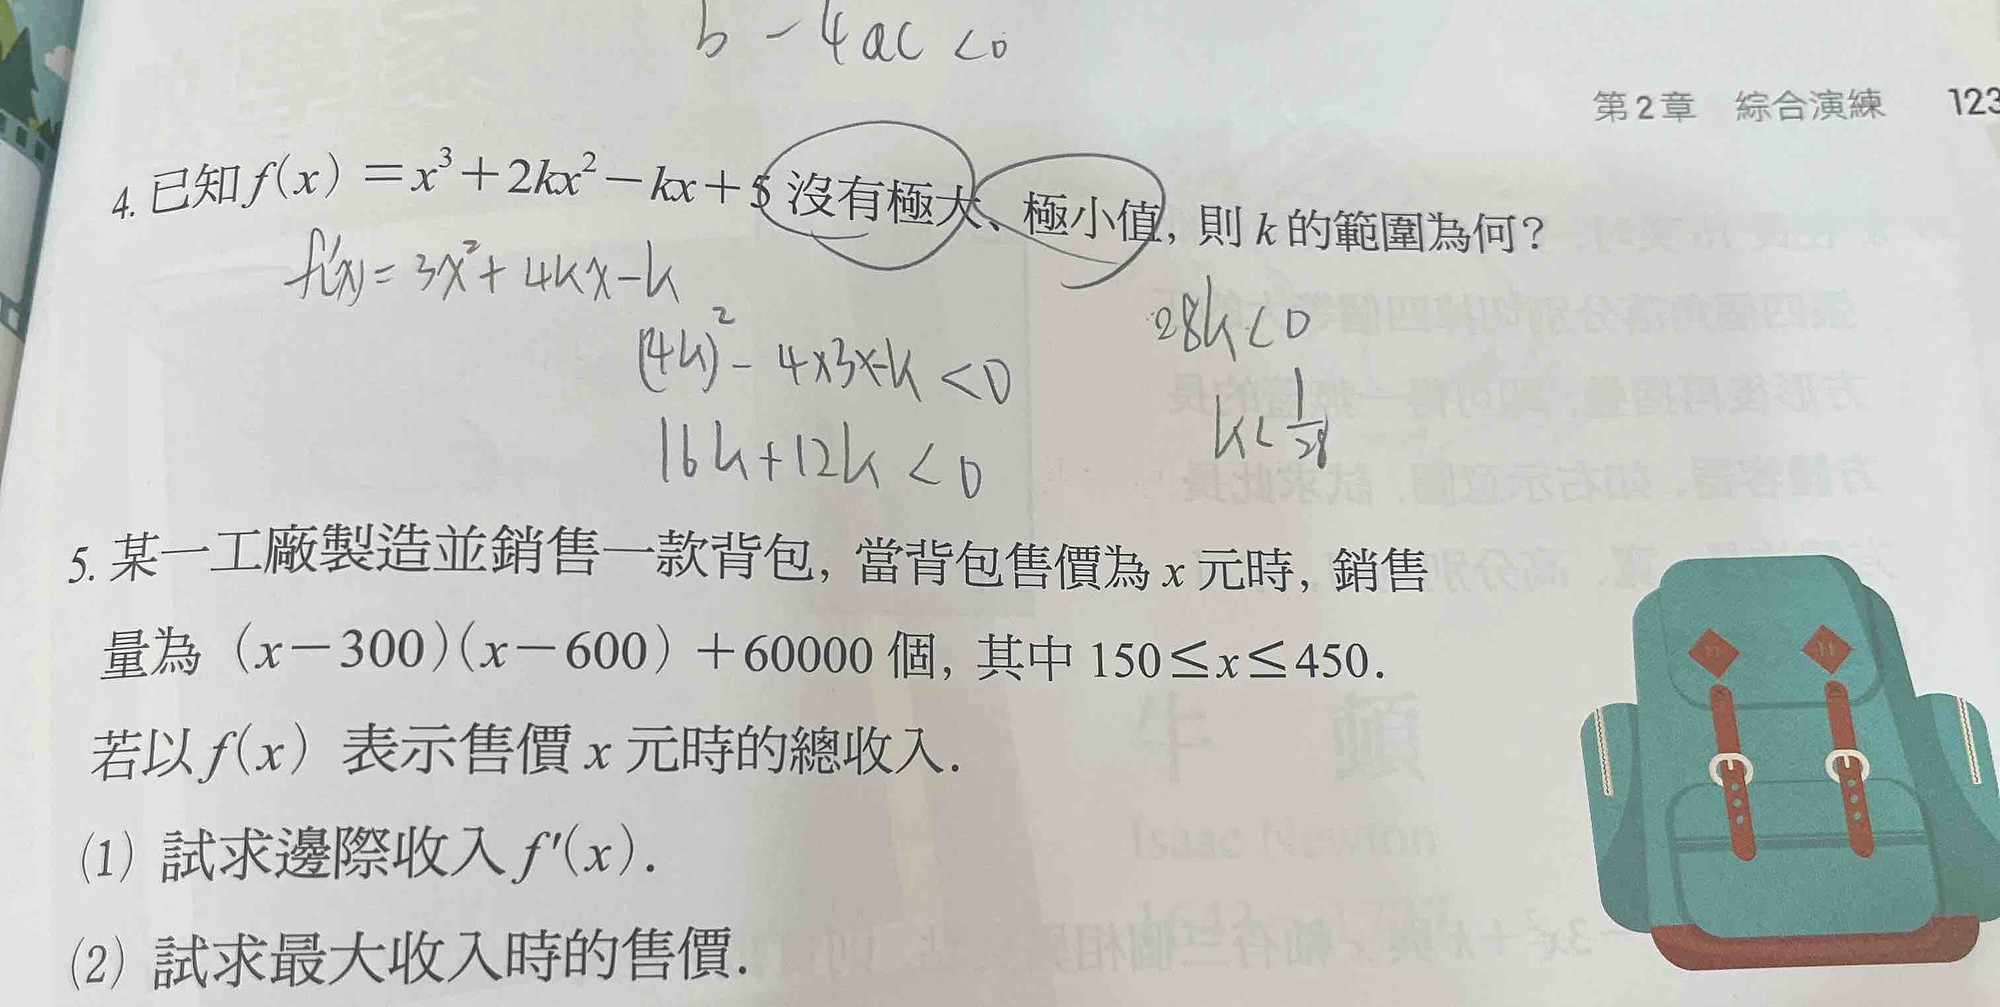 b - 4ac <0
第2章 綜合演練 123
4. 已知f(x)=x³+2kx²-kx+5沒有極大、極小值, 則k的範圍為何?
f'(x) = 3x²+4kx-k
(4k)² - 4x3x-k <0
28k<0
16k+12k <0
k< 1/28
5. 某一工廠製造並銷售一款背包, 當背包售價為x元時, 銷售
量為 (x-300)(x-600)+60000個, 其中150≤x≤450.
若以f(x) 表示售價x元時的總收入.
(1) 試求邊際收入f'(x).
(2) 試求最大收入時的售價.